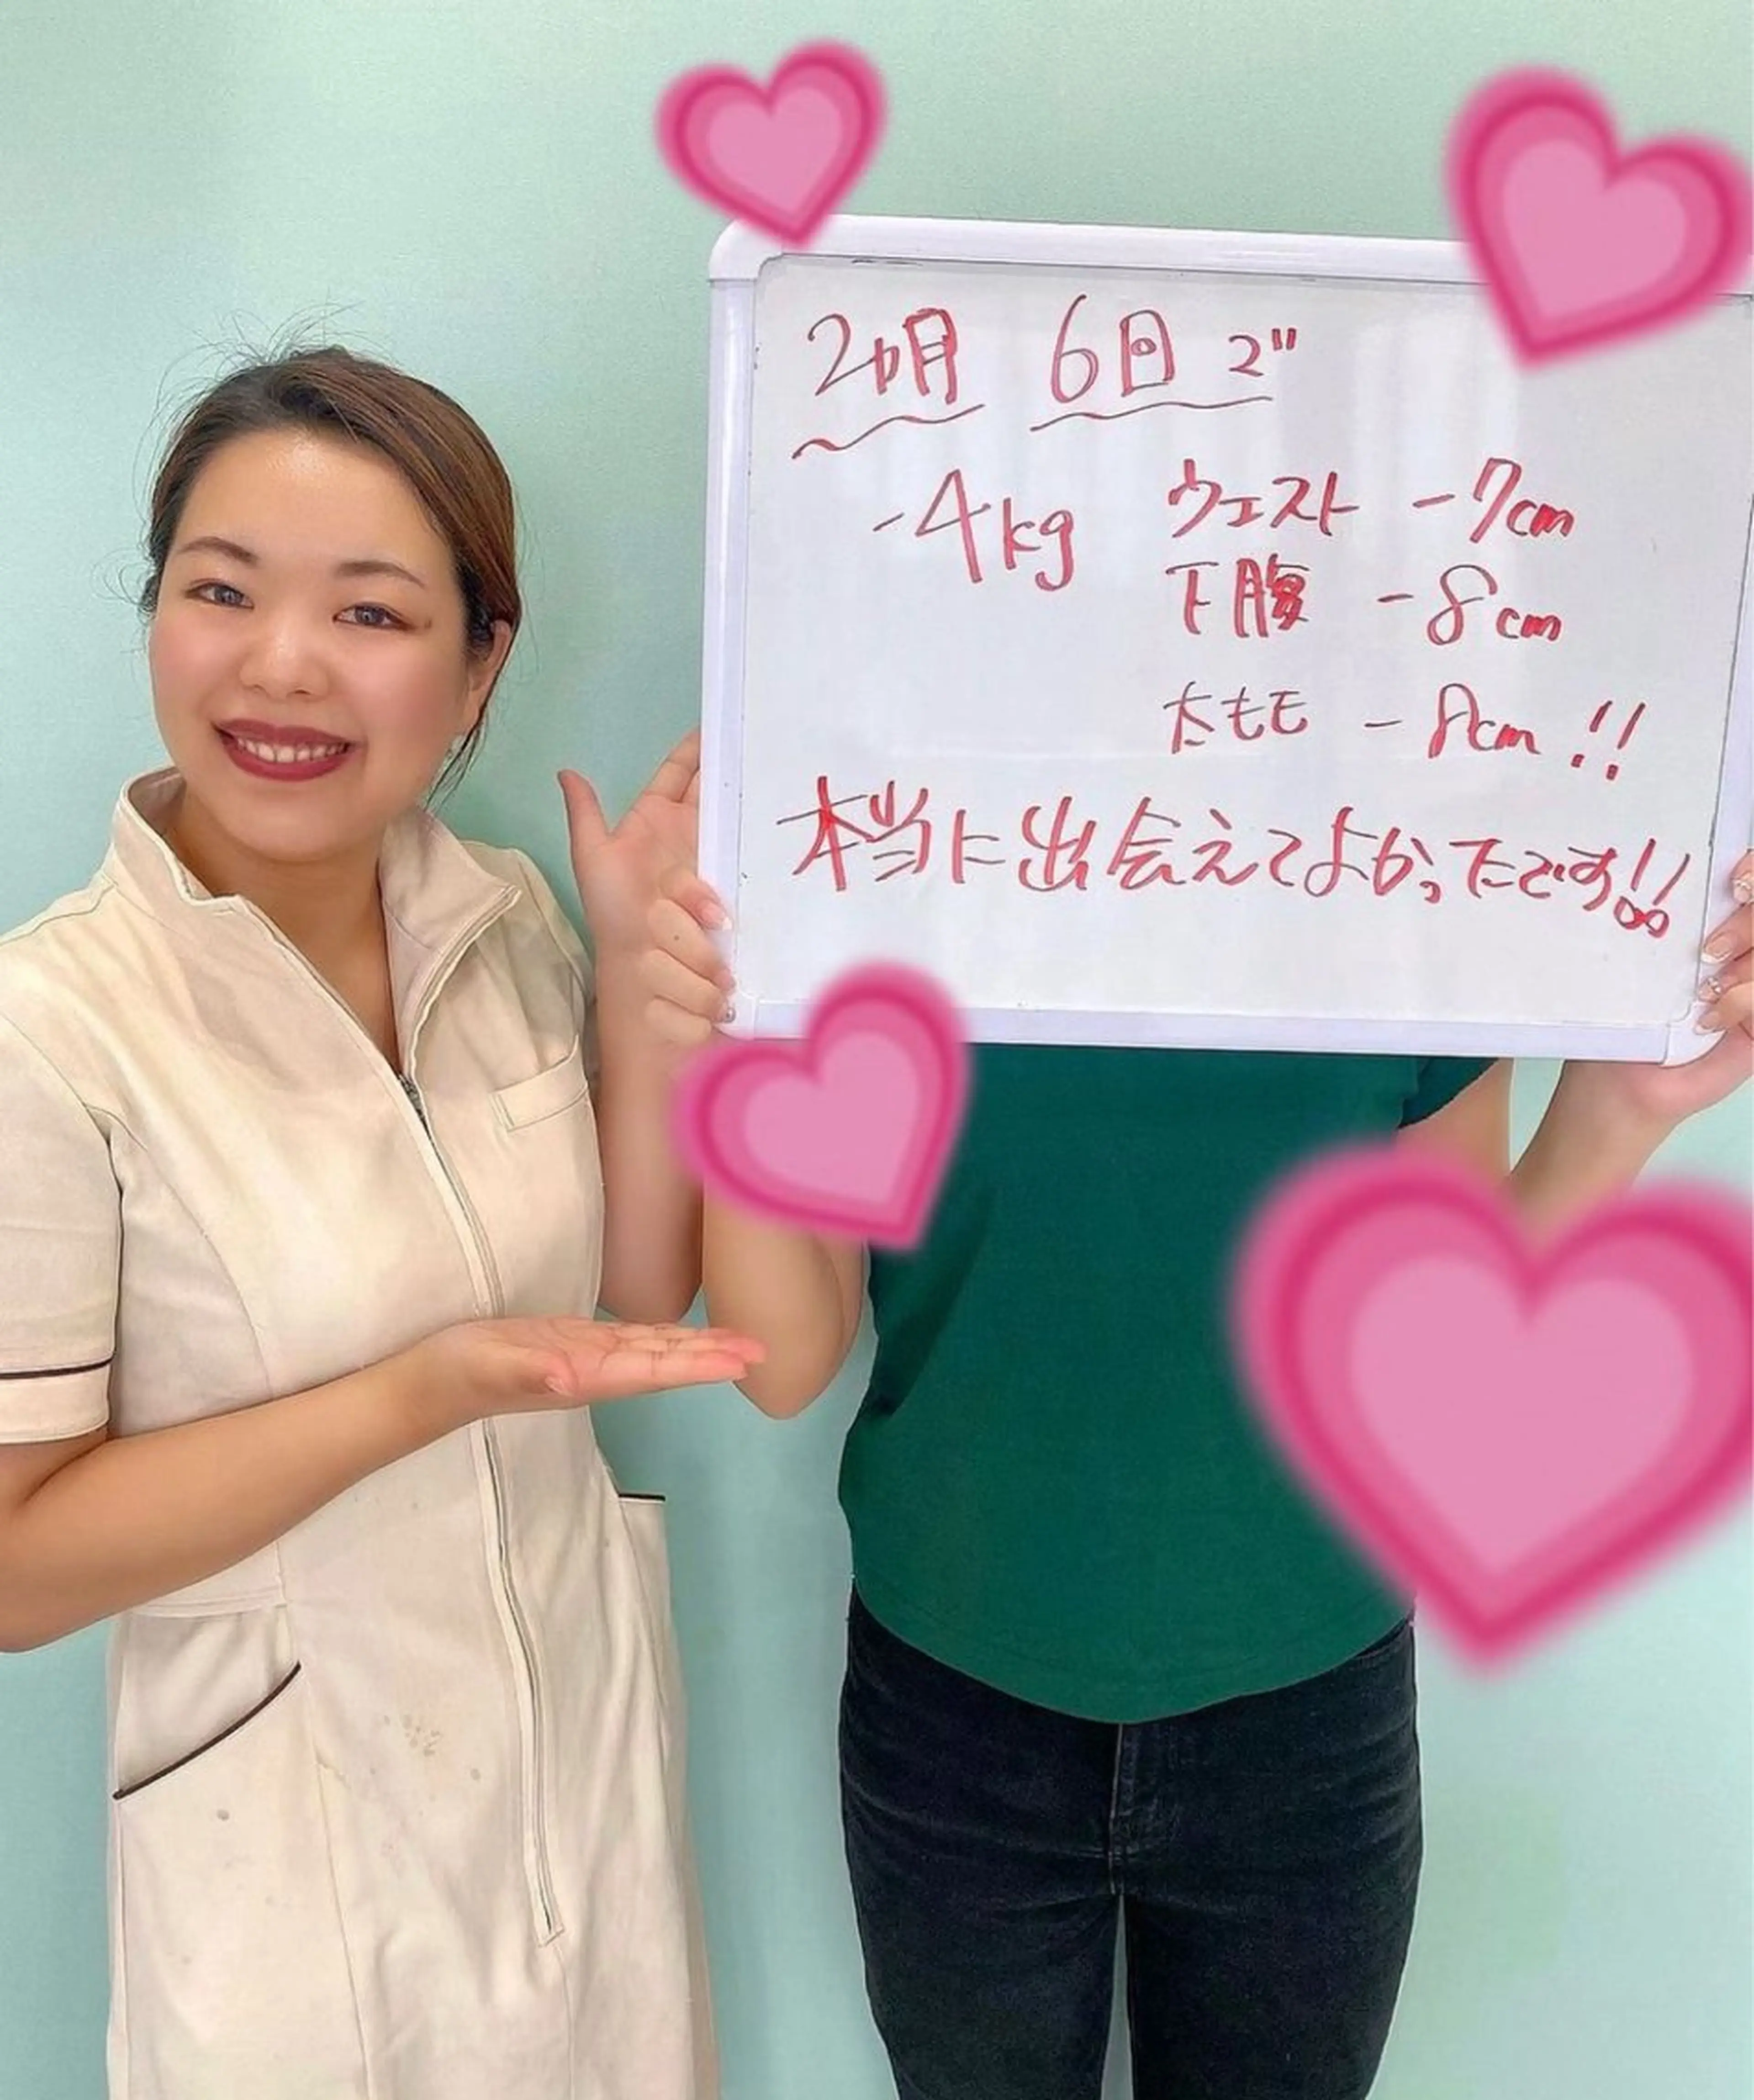 2ヵ月 6回 で
-4kg ウエスト -7cm
下腹 -8cm
太もも -8cm!!
本当に出会えてよかったです!!